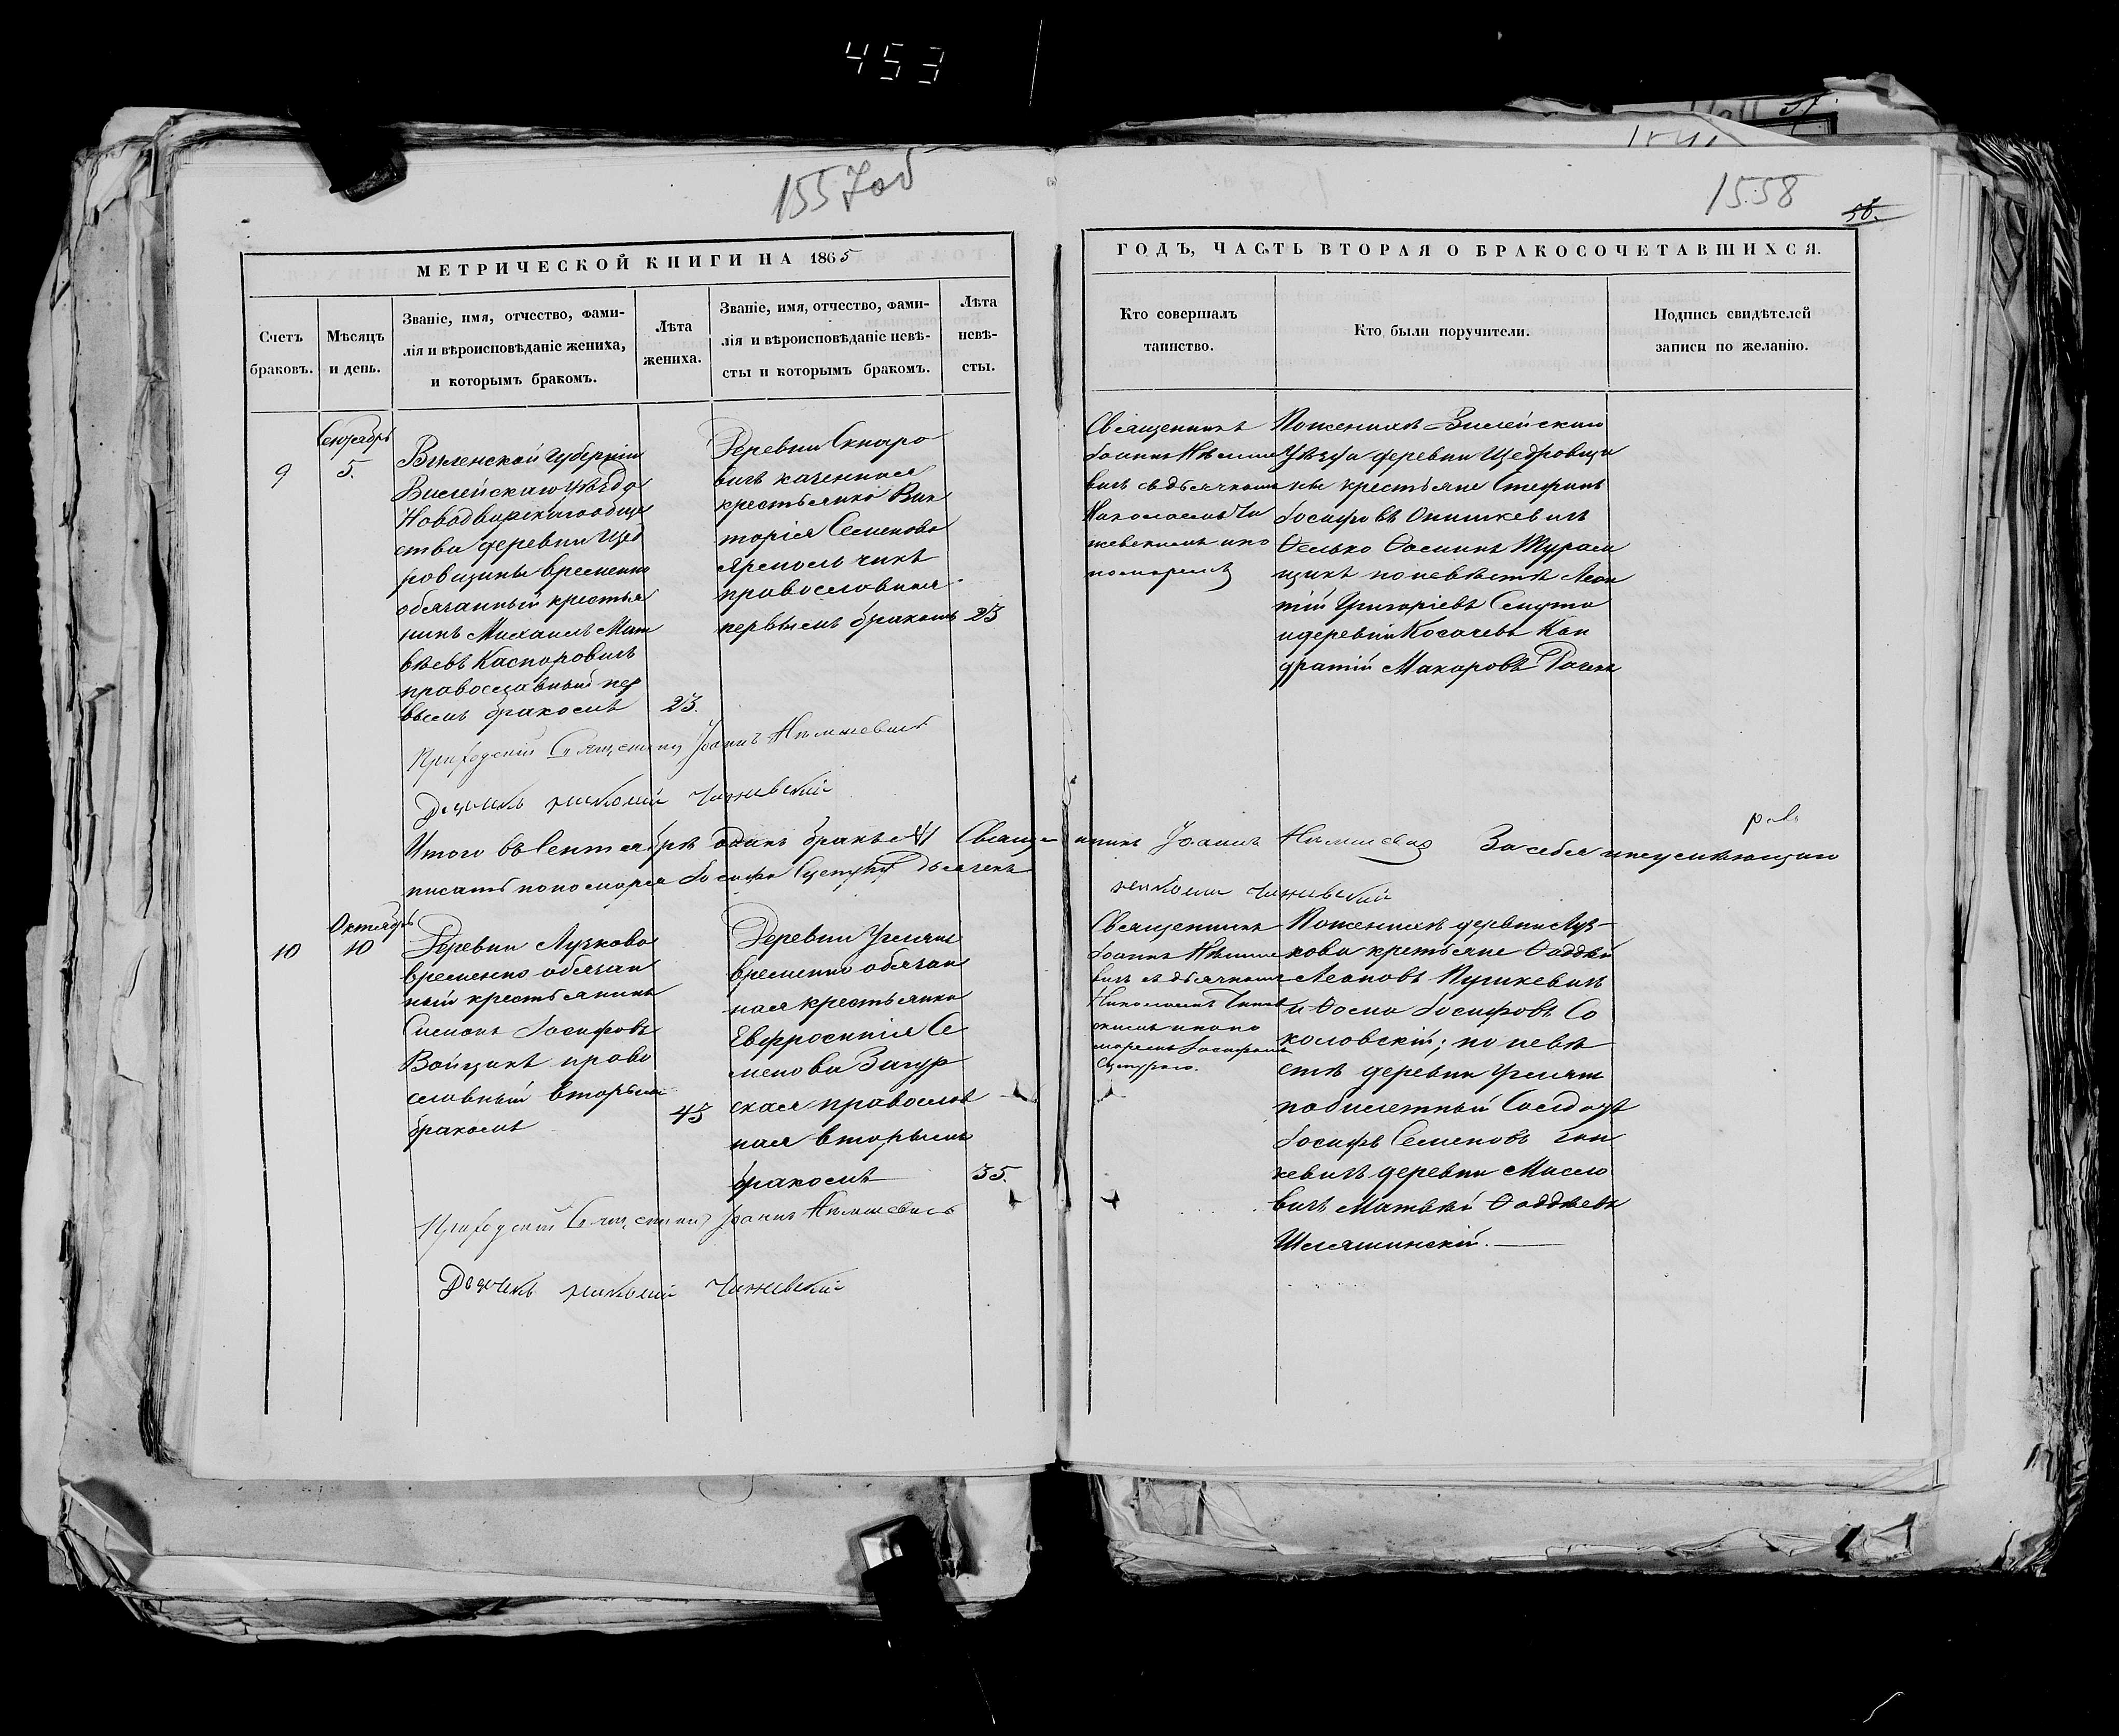 453
1557об
1558
58.
МЕТРИЧЕСКОЙ КНИГИ НА 1865
ГОДЪ, ЧАСТЬ ВТОРАЯ О БРАКОСОЧЕТАВШИХСЯ.
Счетъ
браковъ.
Мѣсяцъ
и день.
Званіе, имя, отчество, фами-
лія и вѣроисповѣданіе жениха,
и которымъ бракомъ.
Лѣта
жениха.
Званіе, имя, отчество, фами-
лія и вѣроисповѣданіе невѣ-
сты и которымъ бракомъ.
Лѣта
невѣ-
сты.
Кто совершалъ
таинство.
Кто были поручители.
Подпись свидѣтелей
записи по желанію.
9
Сентябрь
5.
Виленской Губерніи
Вилейскаго уѣзда
Новодворскаго обще
ства деревни Щед
ровщины временно
обязанный крестья
нинъ Михаилъ Мат
вѣевъ Каспоровичъ
православный пер
вымъ бракомъ
23.
Деревни
вичъ казенная
крестьянка Вик
торія Семенова
православная
первымъ бракомъ
23
Священникъ
Іоаннъ Нѣмше
вичъ съ дьячкомъ
Николаемъ Чи
жевскимъ и по
номаремъ
По женихѣ Вилейскаго
Уѣзда деревни Щедровщи
ны крестьяне Стефанъ
Іосифовъ Онишкевичъ
по невѣстѣ Леон
тій Григоріевъ
и деревни Косачевъ Кон
дратій Макаровъ
Приходскій Священникъ Іоаннъ Нѣмшевичъ
Дьячекъ Николай Чижевскій
Итого въ Сентябрѣ одинъ бракъ №1 Священникъ Іоаннъ Нѣмшевичъ За себя и неумѣющаго
писать пономаря Іосифа Дьячекъ Николай Чижевскій
10
Октябрь
10
Деревни Лузково
временно обязан
ный крестьянинъ
Симонъ Іосифовъ
Войцикъ право
славный вторымъ
бракомъ
45
Деревни Угляны
временно обязан
ная крестьянка
Евфросинія Се
менова Загур
ская православ
ная вторымъ
бракомъ
35.
Священникъ
Іоаннъ Нѣмше
вичъ съ дьячкомъ
Николаемъ Чижев
скимъ и поно
маремъ Іосифомъ
По женихѣ деревни Луз-
кова кретьяне Фаддей
Леоновъ Пушкевичъ
и Фома Іосифовъ Со
коловскій; по невѣ
стѣ деревни Углян
побилетный Солдатъ
Іосифъ Семеновъ
кевичъ деревни Масло
вичъ Матвѣй Фаддѣевъ
Шеляшинскій.
Приходскій Священникъ Іоаннъ Нѣмшевичъ
Дьячекъ Николай Чижевскій